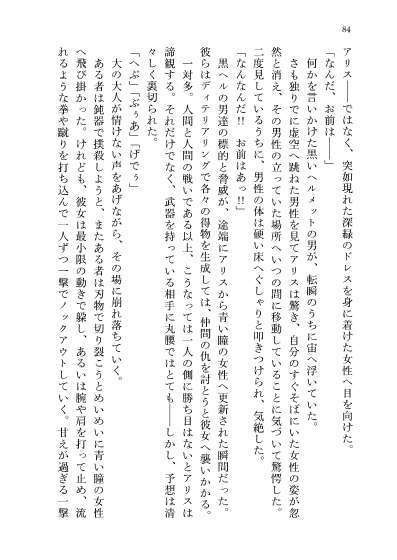 84
アリス――ではなく、突如現れた深緑のドレスを身に着けた女性へ目を向けた。
「なんだ、お前は――」
何かを言いかけた黒いヘルメットの男が、転瞬のうちに宙へ浮いていた。
さも独りでに虚空へ跳ねた男性を見てアリスは驚き、自分のすぐそばにいた女性の姿が忽
然と消え、その男性の立っていた場所へいつの間に移動していることに気づいて驚愕した。
二度見しているうちに、男性の体は硬い床へぐしゃりと叩きつけられ、気絶した。
「なんなんだ!! お前はぁっ!!」
黒ヘルの男達の標的と脅威が、途端にアリスから青い瞳の女性へ更新された瞬間だった。
彼らはディテリアリングで各々の得物を生成しては、仲間の仇を討とうと彼女へ襲いかかる。
一対多。人間と人間の戦いである以上、こうなっては一人の側に勝ち目はないとアリスは
諦観する。それだけでなく、武器を持っている相手に丸腰ではとても――しかし、予想は清
々しく裏切られた。
「へぶ」「ぶぅあ」「げでぅ」
大の大人が情けない声をあげながら、その場に崩れ落ちていく。
ある者は鈍器で撲殺しようと、またある者は刃物で切り裂こうとめいめいに青い瞳の女性
へ飛び掛かった。けれども、彼女は最小限の動きで躱し、あるいは腕や肩を打って止め、流
れるような拳や蹴りを打ち込んで一人ずつ一撃でノックアウトしていく。甘えが過ぎる一撃